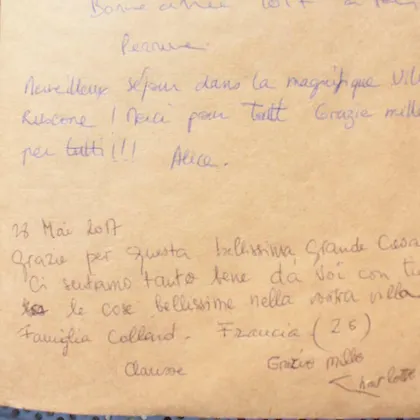 Bonne année 2017 à
Merveilleux séjour dans la magnifique Vill
Rubcone ! Merci pour tout Grazie mille
per tutti !!! Alice.
28 Mai 2017
grazie per questa bellissima, grande Casa
Ci sentiamo tanto bene da voi con tu
le cose bellissime nella vostra villa
Famiglia Collard. Francia (26)
Grazie mille